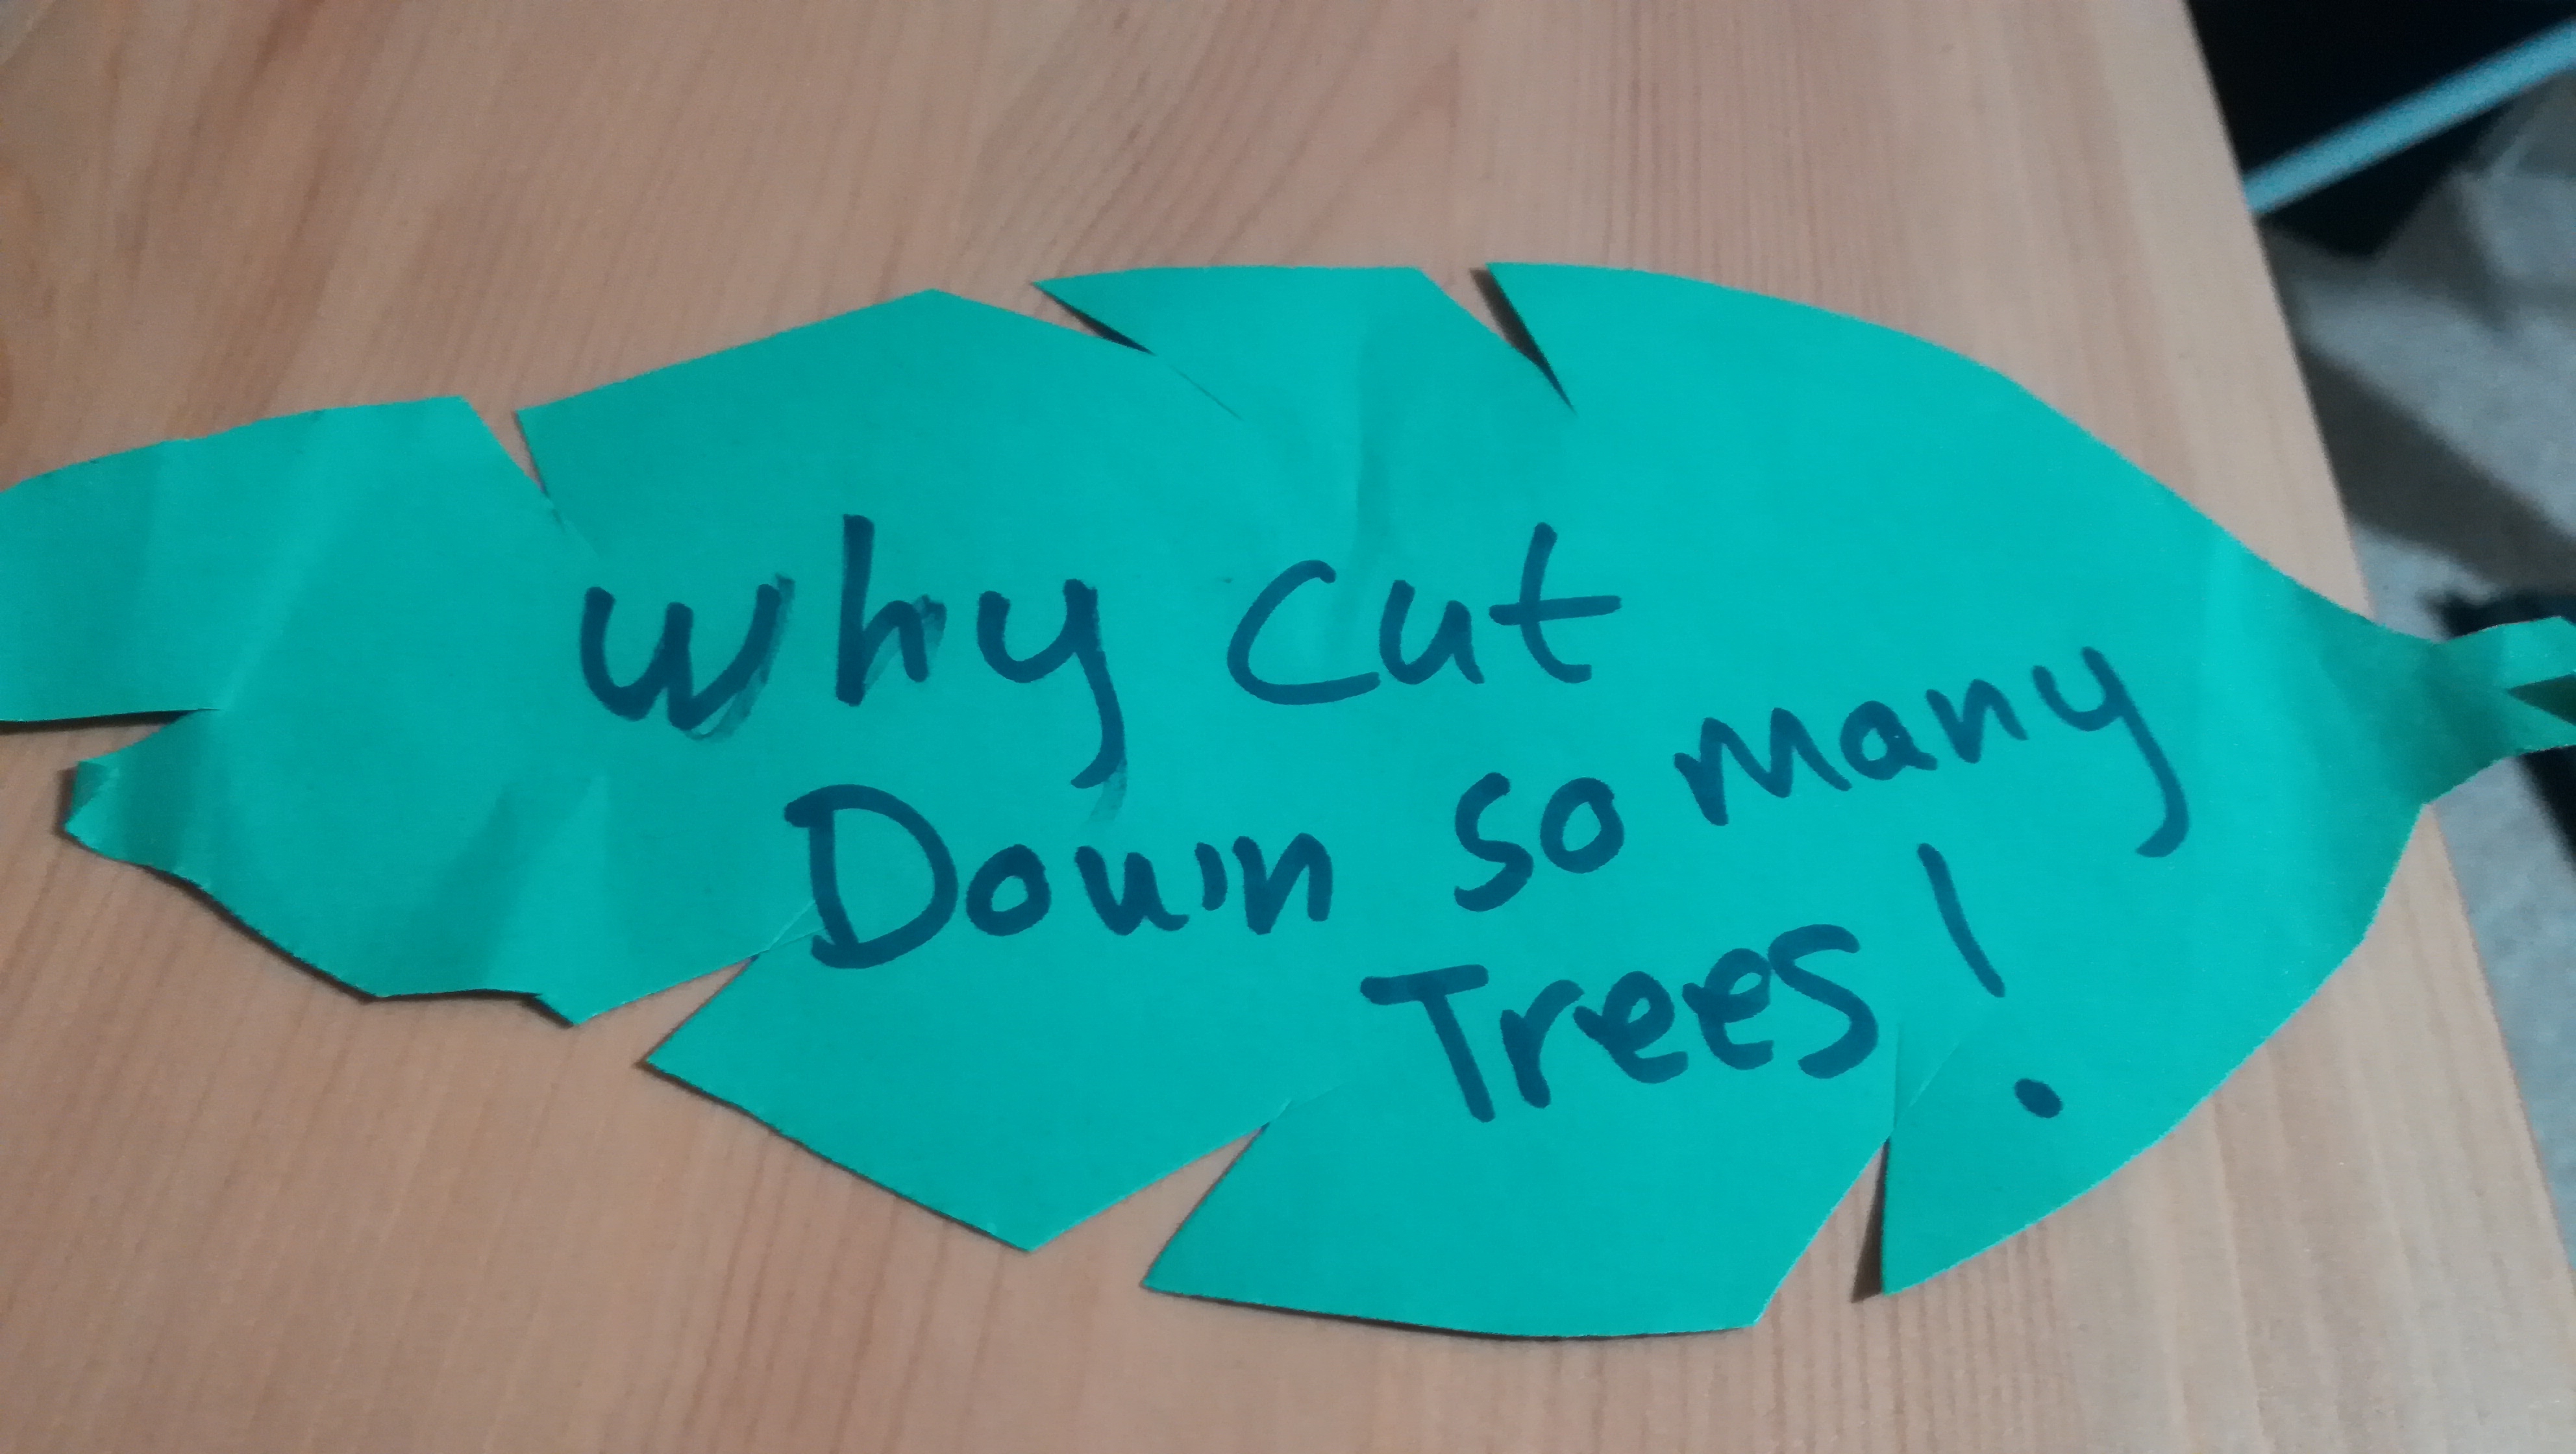 Why cut
Down so many
Trees!